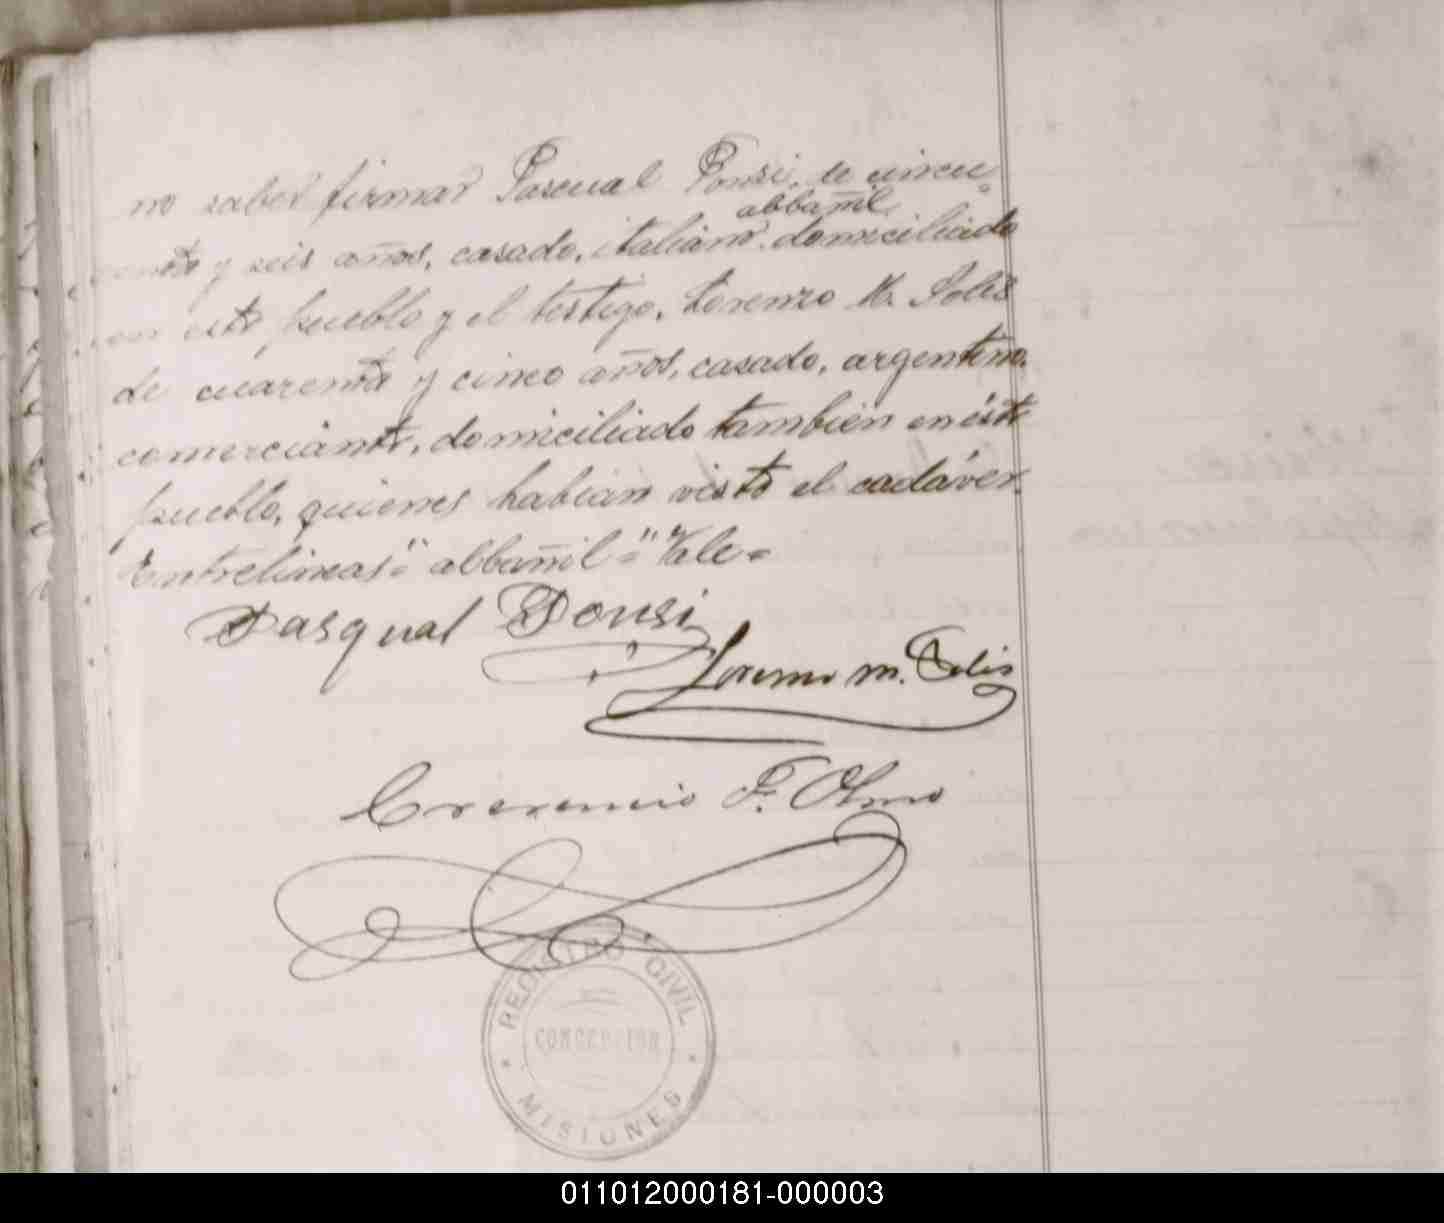 no saber firmar Pascual Ponsi, de cincu-
enta y seis años, casado, italiano, albbañil, domiciliado
en este pueblo y el testigo, Lorenzo M. Solis
de cuarenta y cinco años, casado, argentino,
comerciante, domiciliado también en éste
pueblo, quienes habían visto el cadáver.
Entrelineas "albbañil" Vale=
Pasqual Ponsi
Lorenzo M. Solis
Crecencio F. Olmo
REGISTRO CIVIL
CONCEPCION
MISIONES
011012000181-000003